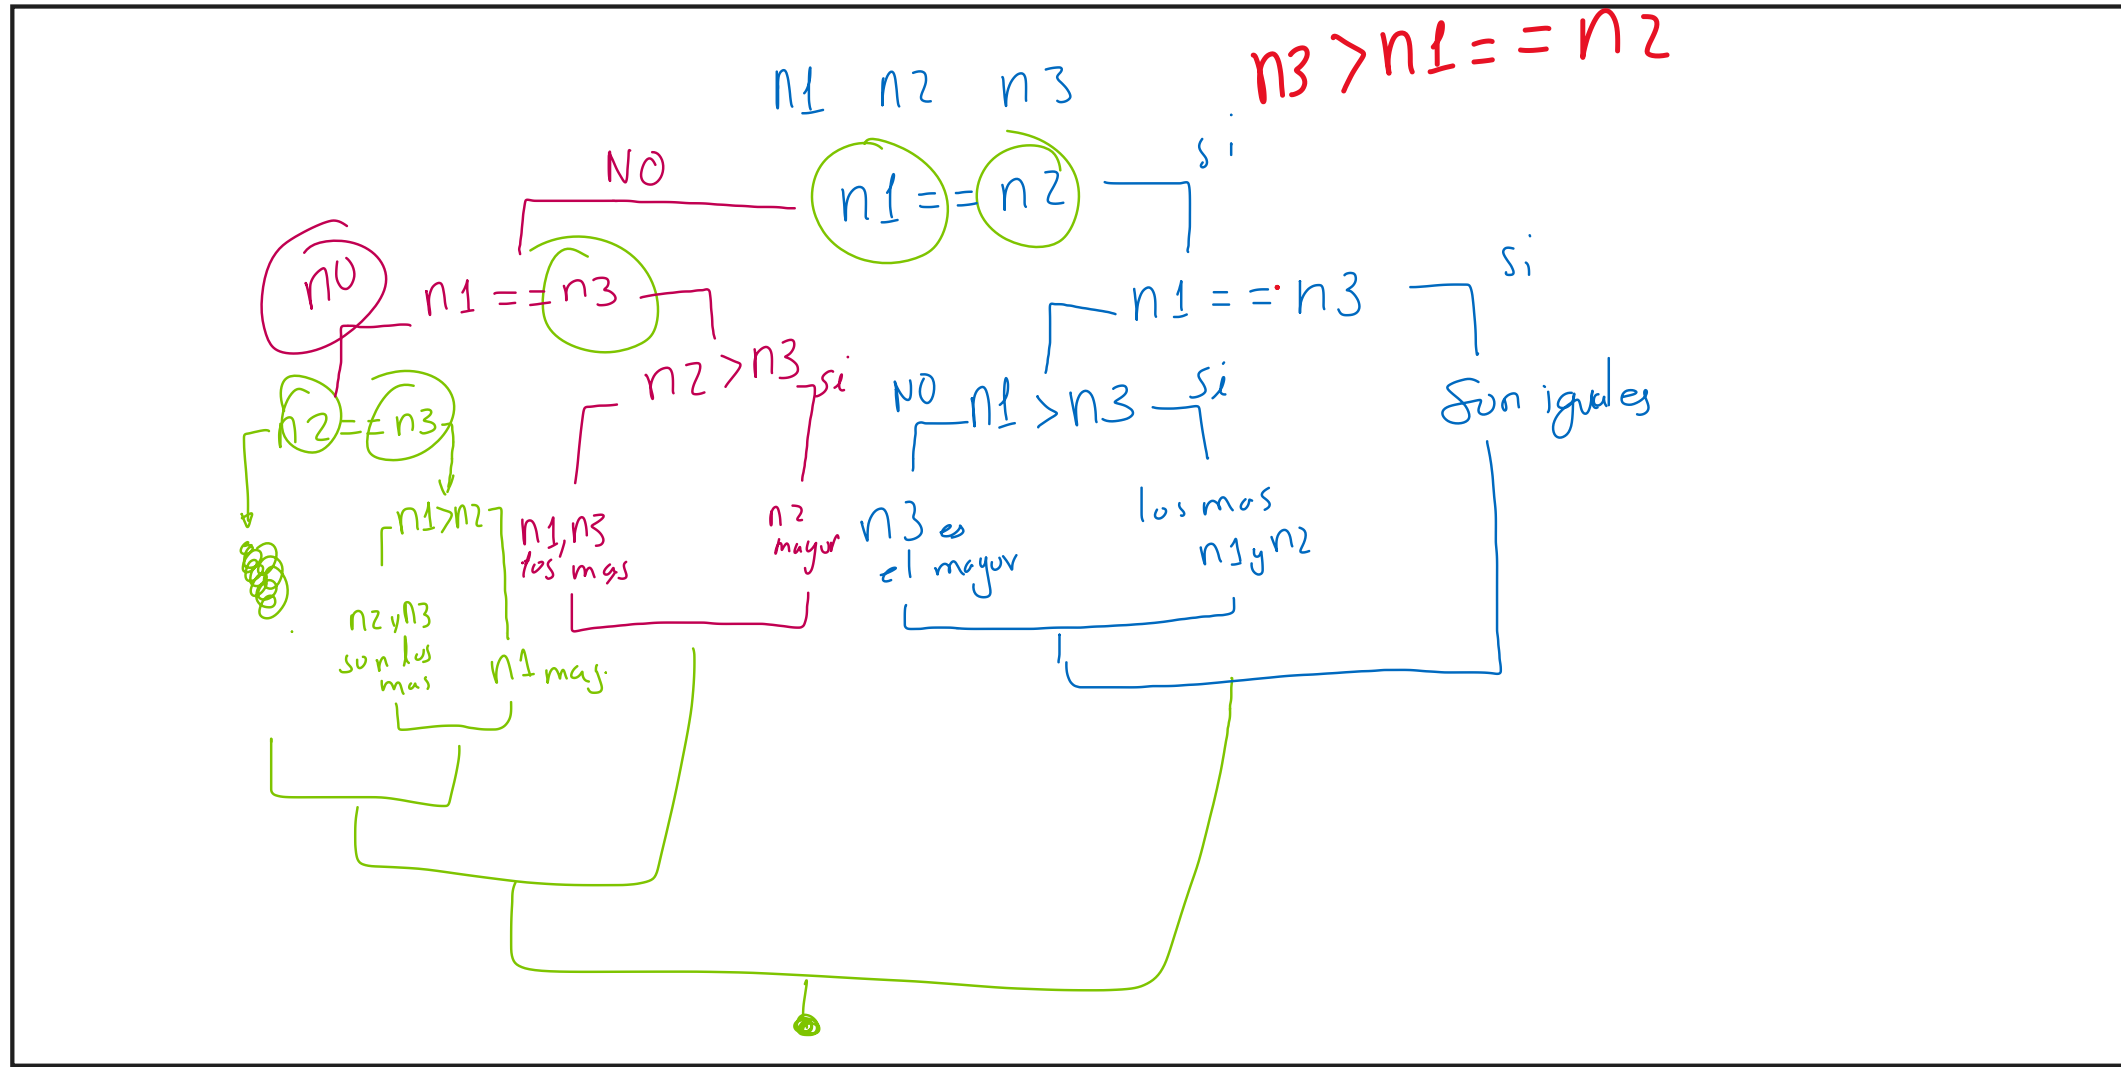 n3 > n1 = = n2
n1 n2 n3
si
NO
n1 = = n2
si
n0
n1 = = n3
n1 = = n3
n2 > n3 si
NO n1 > n3 si
Son iguales
n2 = = n3
n1>n2
n1,n3
los mas
n2
mayor
n3 es
el mayor
los mas
n1 y n2
n2 y n3
son los
mas
n1 may.